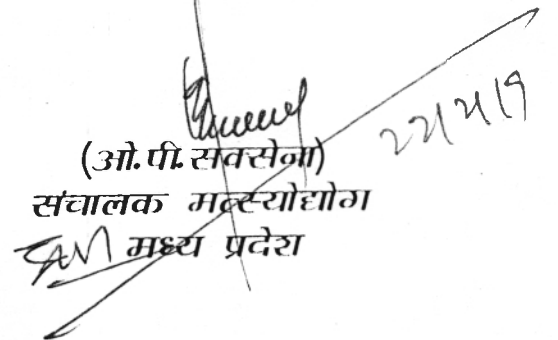 (ओ.पी.सक्सेना)
संचालक मत्स्योद्योग
मध्य प्रदेश